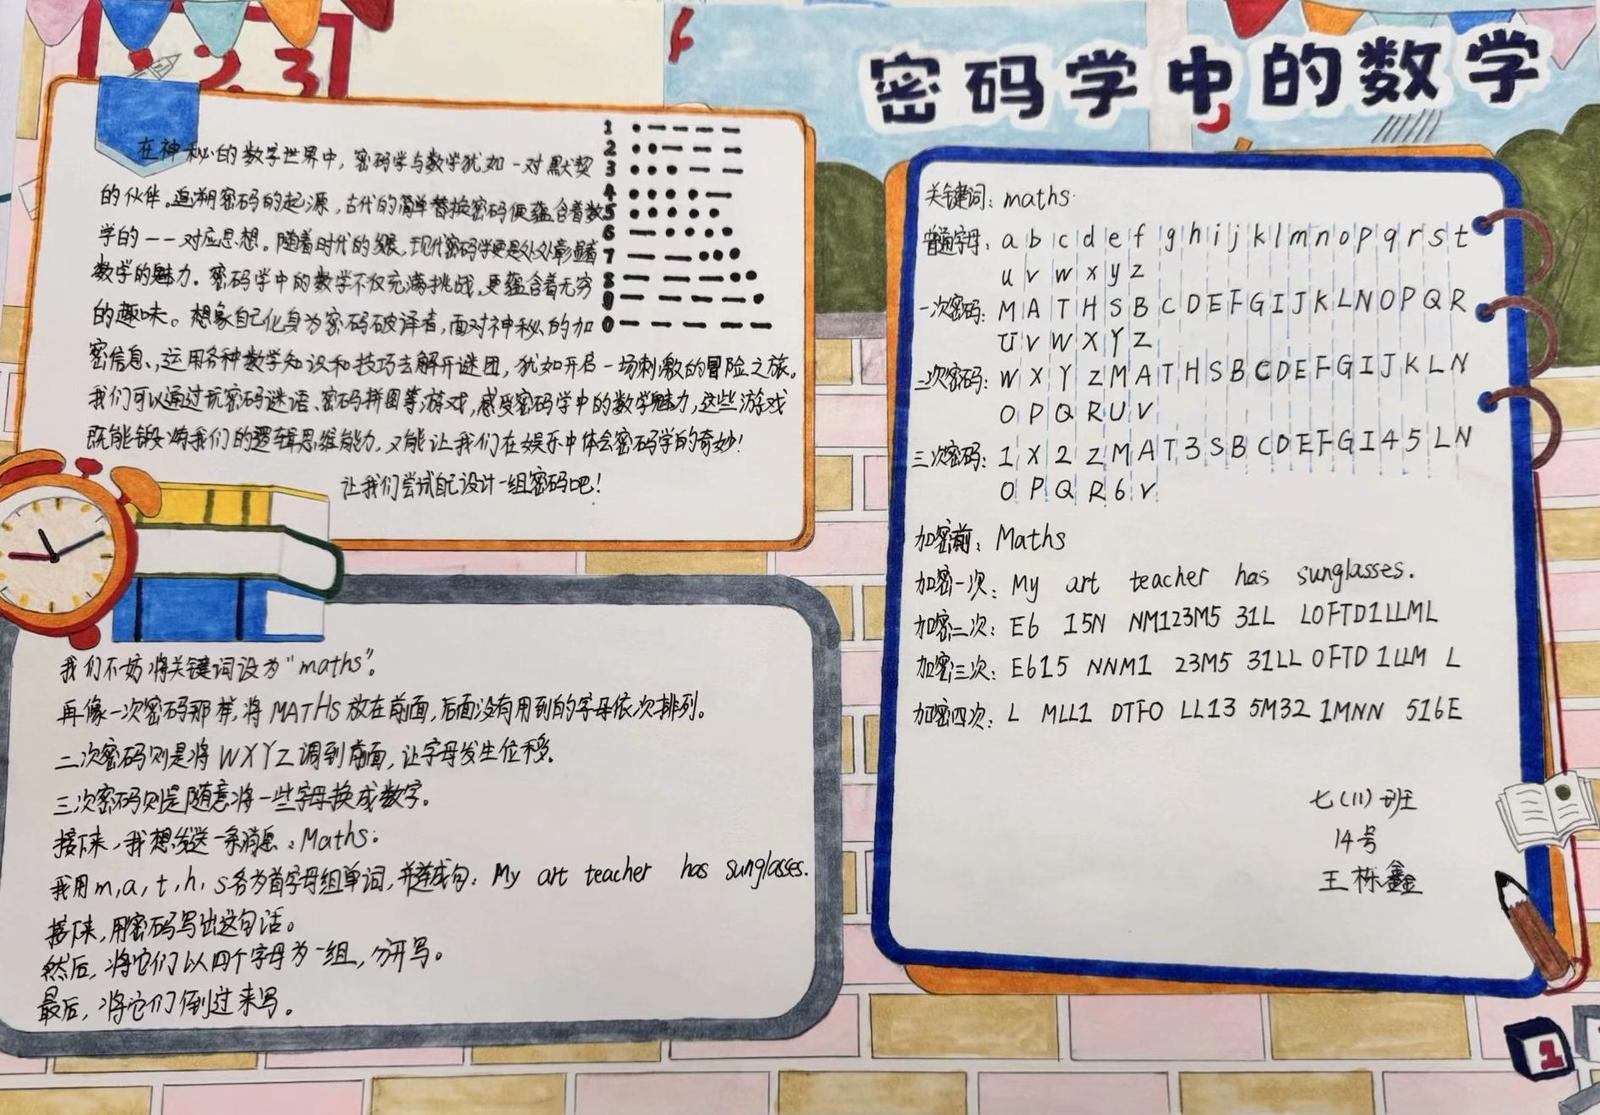 123
密码学中的数学
在神秘的数字世界中，密码学与数学犹如一对默契
的伙伴。追溯密码的起源，古代的简单替换密码便蕴含着数
学的一一对应思想。随着时代的发展，现代密码学更是处处彰显着
数学的魅力。密码学中的数学不仅充满挑战，更蕴含着无穷
的趣味。想象自己化身为密码破译者，面对神秘的加
密信息，运用各种数学知识和技巧去解开谜团，犹如开启一场刺激的冒险之旅。
我们可以通过玩密码谜语、密码拼图等游戏，感受密码学中的数学魅力，这些游戏
既能锻炼我们的逻辑思维能力，又能让我们在娱乐中体会密码学的奇妙！
让我们尝试自己设计一组密码吧！
1 ●————
2 ●●———
3 ●●●——
4 ●●●●—
5 ●●●●●
6 —●●●●
7 ——●●●
8 ———●●
9 ————●
0 —————
我们不妨将关键词设为“maths”。
再像一次密码那样，将MATHS放在前面，后面没有用到的字母依次排列。
二次密码则是将WXYZ调到前面，让字母发生位移。
三次密码则是随意将一些字母换成数字。
接下来，我想发送一条消息：Maths.
我用m,a,t,h,s各为首字母组单词，并连成句：My art teacher has sunglasses.
接下来，用密码写出这句话。
然后，将它们以四个字母为一组，分开写。
最后，将它们倒过来写。
关键词：maths.
普通字母：a b c d e f g h i j k l m n o p q r s t
u v w x y z
一次密码：M A T H S B C D E F G I J K L N O P Q R
U V W X Y Z
二次密码：W X Y Z M A T H S B C D E F G I J K L N
O P Q R U V
三次密码：1 X 2 Z M A T 3 S B C D E F G I 4 5 L N
O P Q R 6 V
加密前：Maths
加密一次：My art teacher has sunglasses.
加密二次：E6 15N NM123M5 31L LOFTD1LLML
加密三次：E615 NNM1 23M5 31LL OFTD 1LLM L
加密四次：L MLL1 DTFO LL13 5M32 1MNN 516E
七（11）班
14号
王栎鑫
1